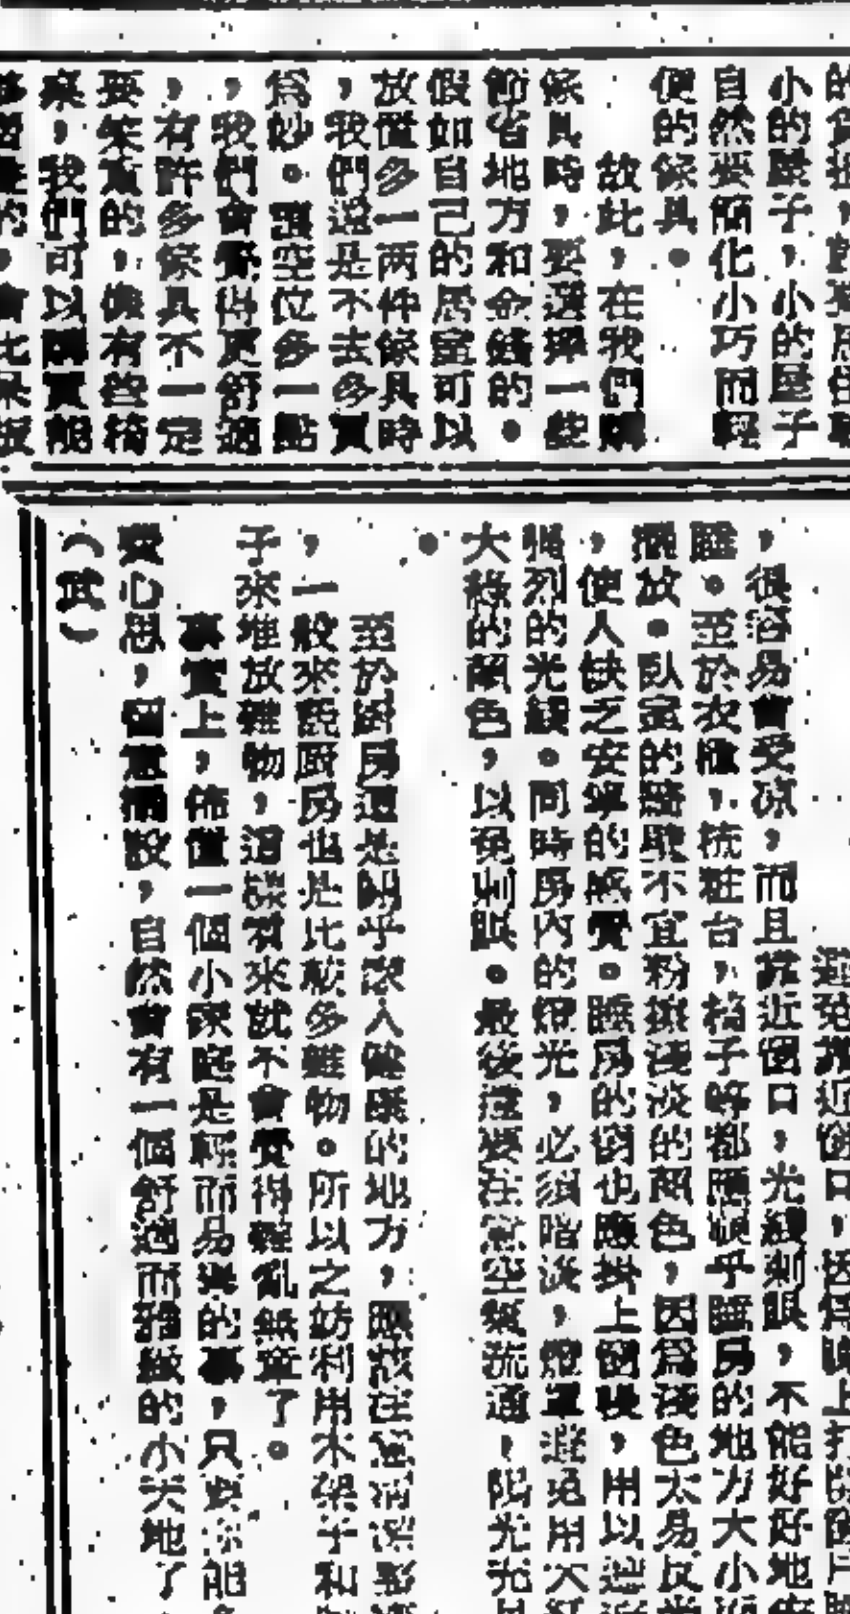 小的屋子，小的屋子
自然要簡化小巧而輕
便的傢具。
故此，在我們購
傢具時，要選擇一些
節省地方和金錢的。
假如自己的居室可以
放置多一两件傢具時
，我們還是不去多買
為妙。讓空位多一點
，我們會覺得更舒適
，有許多傢具不一定
要笨重的，像有些椅
桌，我們可以購買能
，很容易會受凉，而且靠近窗口，光綫刺眼，不能好好地
睡。至於衣櫃，梳粧台，椅子等都應視乎睡房的地方大小
擺放。臥室的牆壁不宜粉搽淺淡的顏色，因為淺色太易反
，使人缺乏安寧的感覺。睡房的窗也應掛上窗幔，用以
烈的光綫。同時房內的燈光，必須暗淡，燈罩避免用大
大綠的顏色，以免刺眼。最後還要注意空氣流通，陽光
。
至於廚房這是關乎家人健康的地方，應該注意清潔
，一般來説厨房也是比較多雜物。所以之妨利用木架子和
子來堆放雜物，這樣看來就不會覺得雜亂無章了。
事實上，佈置一個小家庭是輕而易舉的事，只要你能
愛心思，留意擺設，自然會有一個舒適而雅緻的小天地了
（武）